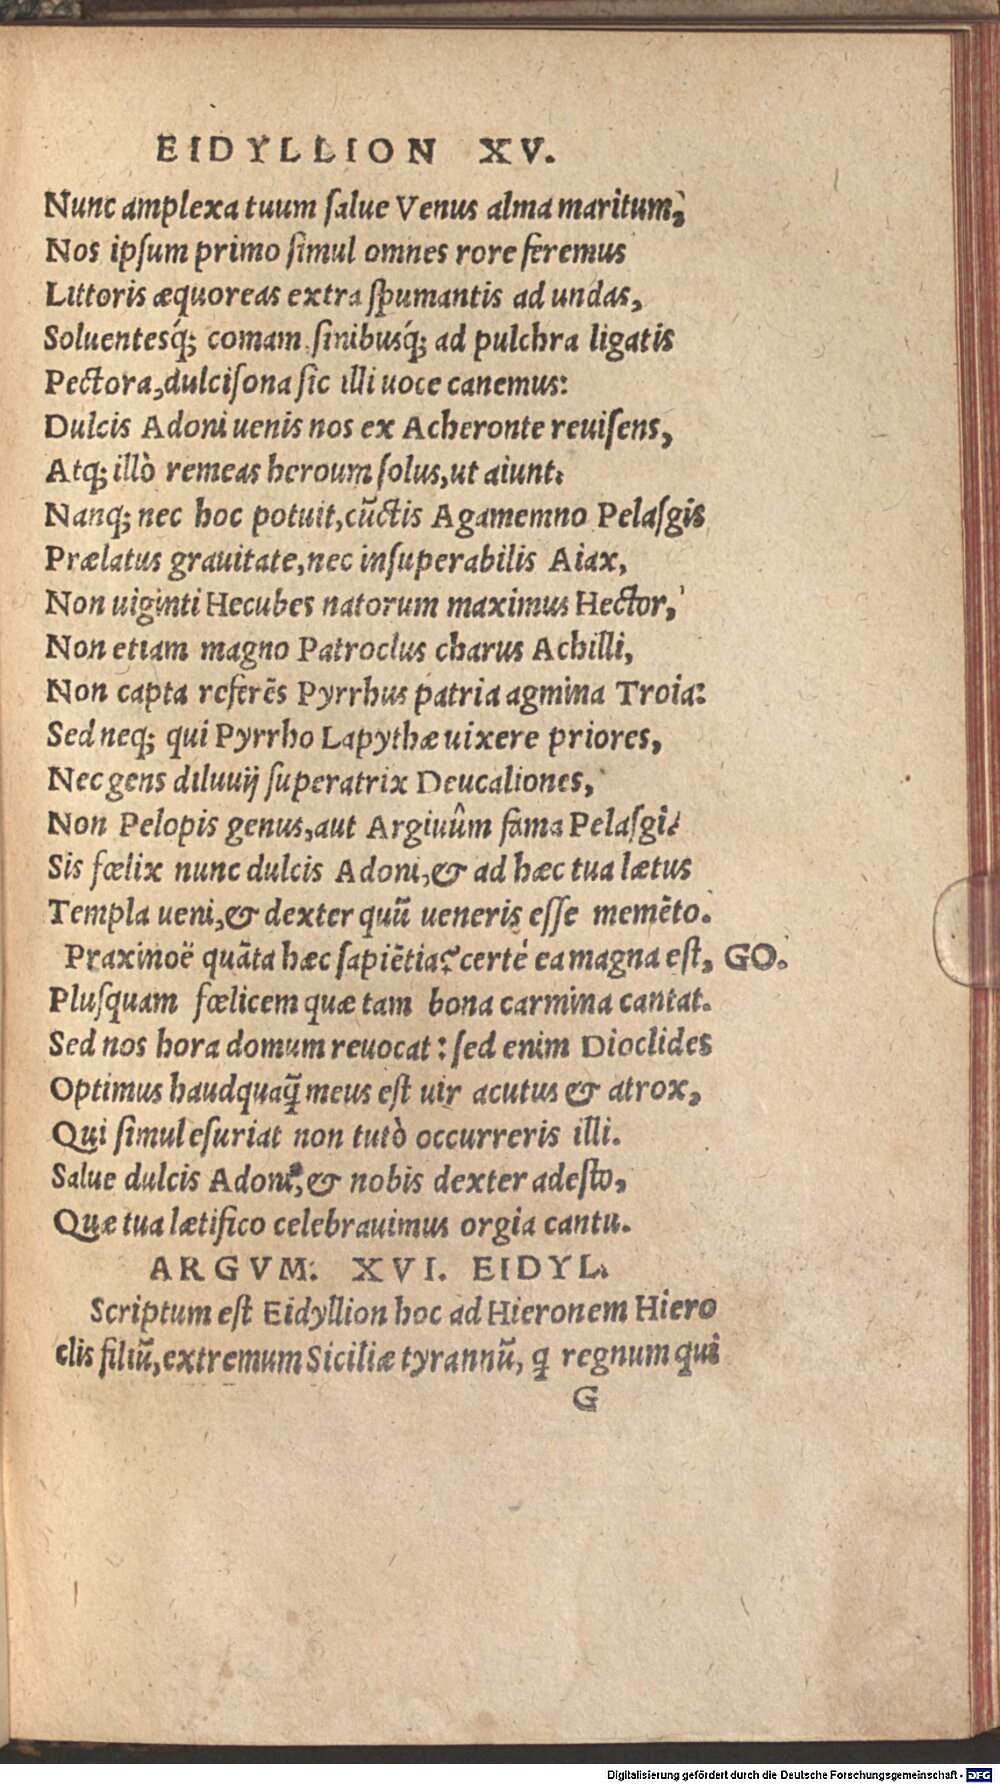 EIDYLLION XV.
Nunc amplexa tuum ſalue Venus alma maritum,
Nos ipſum primo ſimul omnes rore feremus
Littoris æquoreas extra ſpumantis ad undas,
Soluentesq́; comam ſinibusq́; ad pulchra ligatis
Pectora, dulciſona ſic illi uoce canemus:
Dulcis Adoni uenis nos ex Acheronte reuiſens,
Atq; illò remeas heroum ſolus, ut aiunt.
Nanq; nec hoc potuit, cūctis Agamemno Pelaſgis
Prælatus grauitate, nec inſuperabilis Aiax,
Non uiginti Hecubes natorum maximus Hector,
Non etiam magno Patroclus charus Achilli,
Non capta referēs Pyrrhus patria agmina Troia:
Sed neq; qui Pyrrho Lapythæ uixere priores,
Nec gens diluuij ſuperatrix Deucaliones,
Non Pelopis genus, aut Argiuûm fama Pelaſgi.
Sis fœlix nunc dulcis Adoni, & ad hæc tua lætus
Templa ueni, & dexter quū ueneris eſſe memēto.
Praxinoë quāta hæc ſapiētia? certé ea magna eſt, GO.
Pluſquam fœlicem quæ tam bona carmina cantat.
Sed nos hora domum reuocat: ſed enim Dioclides
Optimus haudquaq̄ meus eſt uir acutus & atrox,
Qui ſimul eſuriat non tutò occurreris illi.
Salue dulcis Adoni, & nobis dexter adeſto,
Quæ tua lætifico celebrauimus orgia cantu.
ARGVM. XVI. EIDYL.
Scriptum eſt Eidyllion hoc ad Hieronem Hiero
clis filiū, extremum Siciliæ tyrannū, q regnum qui
G
Digitalisierung gefördert durch die Deutsche Forschungsgemeinschaft - DFG